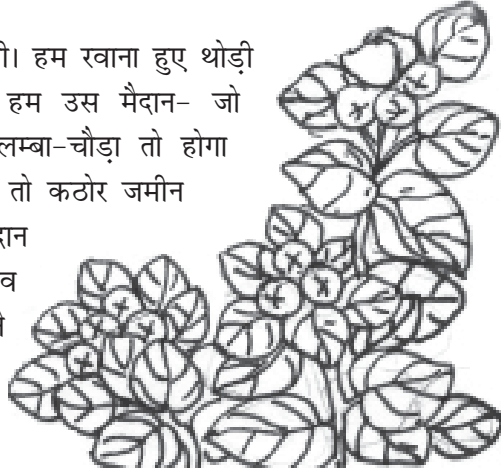 ी। हम रवाना हुए थोड़ी
हम उस मैदान- जो
लम्बा-चौड़ा तो होगा
तो कठोर जमीन
दान
व